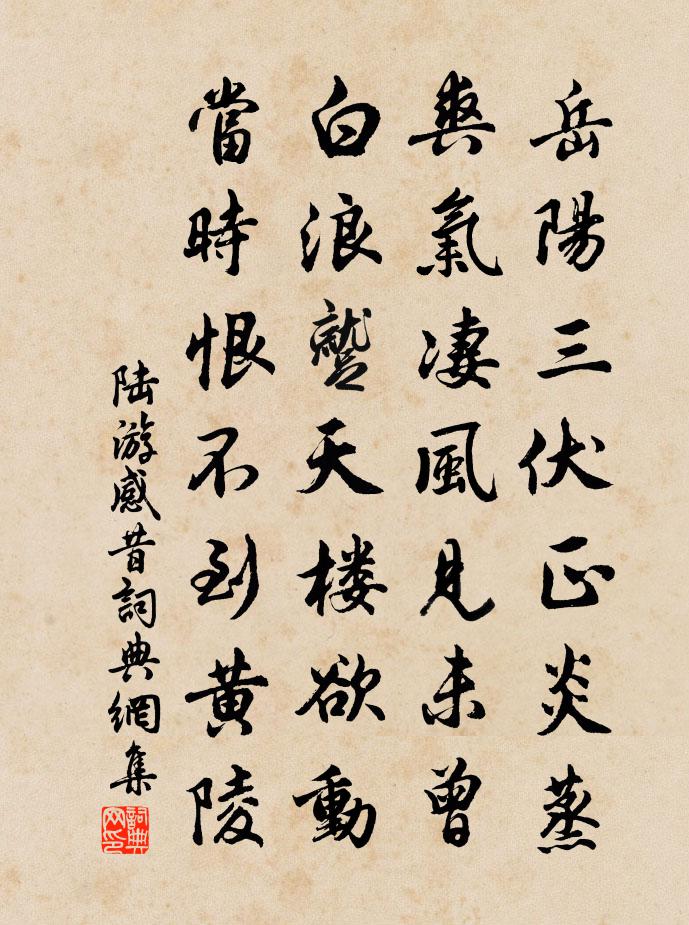 岳陽三伏正炎蒸
爽氣凄風見未曾
白浪蹵天楼欲動
當時恨不到黄陵
陆游感昔詞典網集
詞典网印